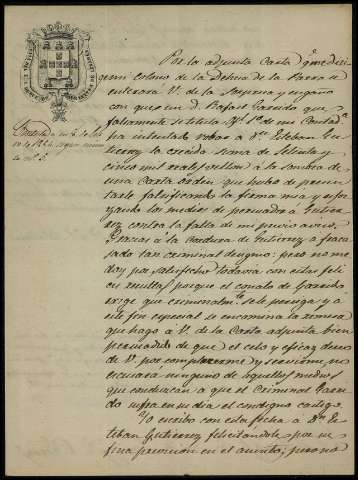 Por la adjunta Carta q.e me diri-
ge mi colono de la Dehesa de la Parra se
enterará V. de la Sorpresa y engaño
con que un D. Rafael Garrido que
falsamente se titula Of.l 1.o de mi Contad.a
ha intentado robar á D.n Esteban Gu-
tierrez la crecida suma de Setenta y
cinco mil reales vellon á la sombra de
una Carta orden que hubo de presen-
tarle falsificando la firma mia y
los medios de persuadir á Gutier-
rez contra la falta de mi previo aviso.
Gracias á la cordura de Gutierrez á fraca-
sado tan criminal designio: pero no me
doy por satisfecho todavia con este feli
resultado porque el conato de Garrido
exige que criminalm.te se le persiga y a
este fin especial se encamina la remesa
que hago á V. de la Carta adjunta bien
persuadido de que el celo y eficaz deseo
de V. por complacerme y servirme no
escusará ninguno de aquellos medios
que conduzcan a que el Criminal Garri-
do sufra en su dia el condigno castigo.
Yo escribo con esta fecha á D.n Es-
teban Gutierrez felicitandole por su
fina prevision en el asunto; pero no